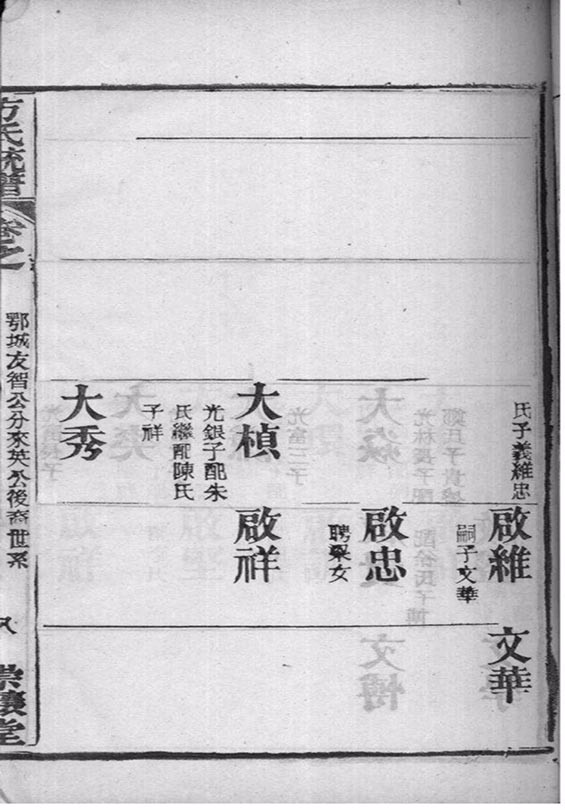 氏子義維忠
啟維
嗣子文華
文華
啟忠
聘梁女
大楨
光銀子配朱
氏繼配陳氏
子祥
啟祥
大秀
方氏統譜
卷之
鄂城友智公分來英公後裔世系
八
堂